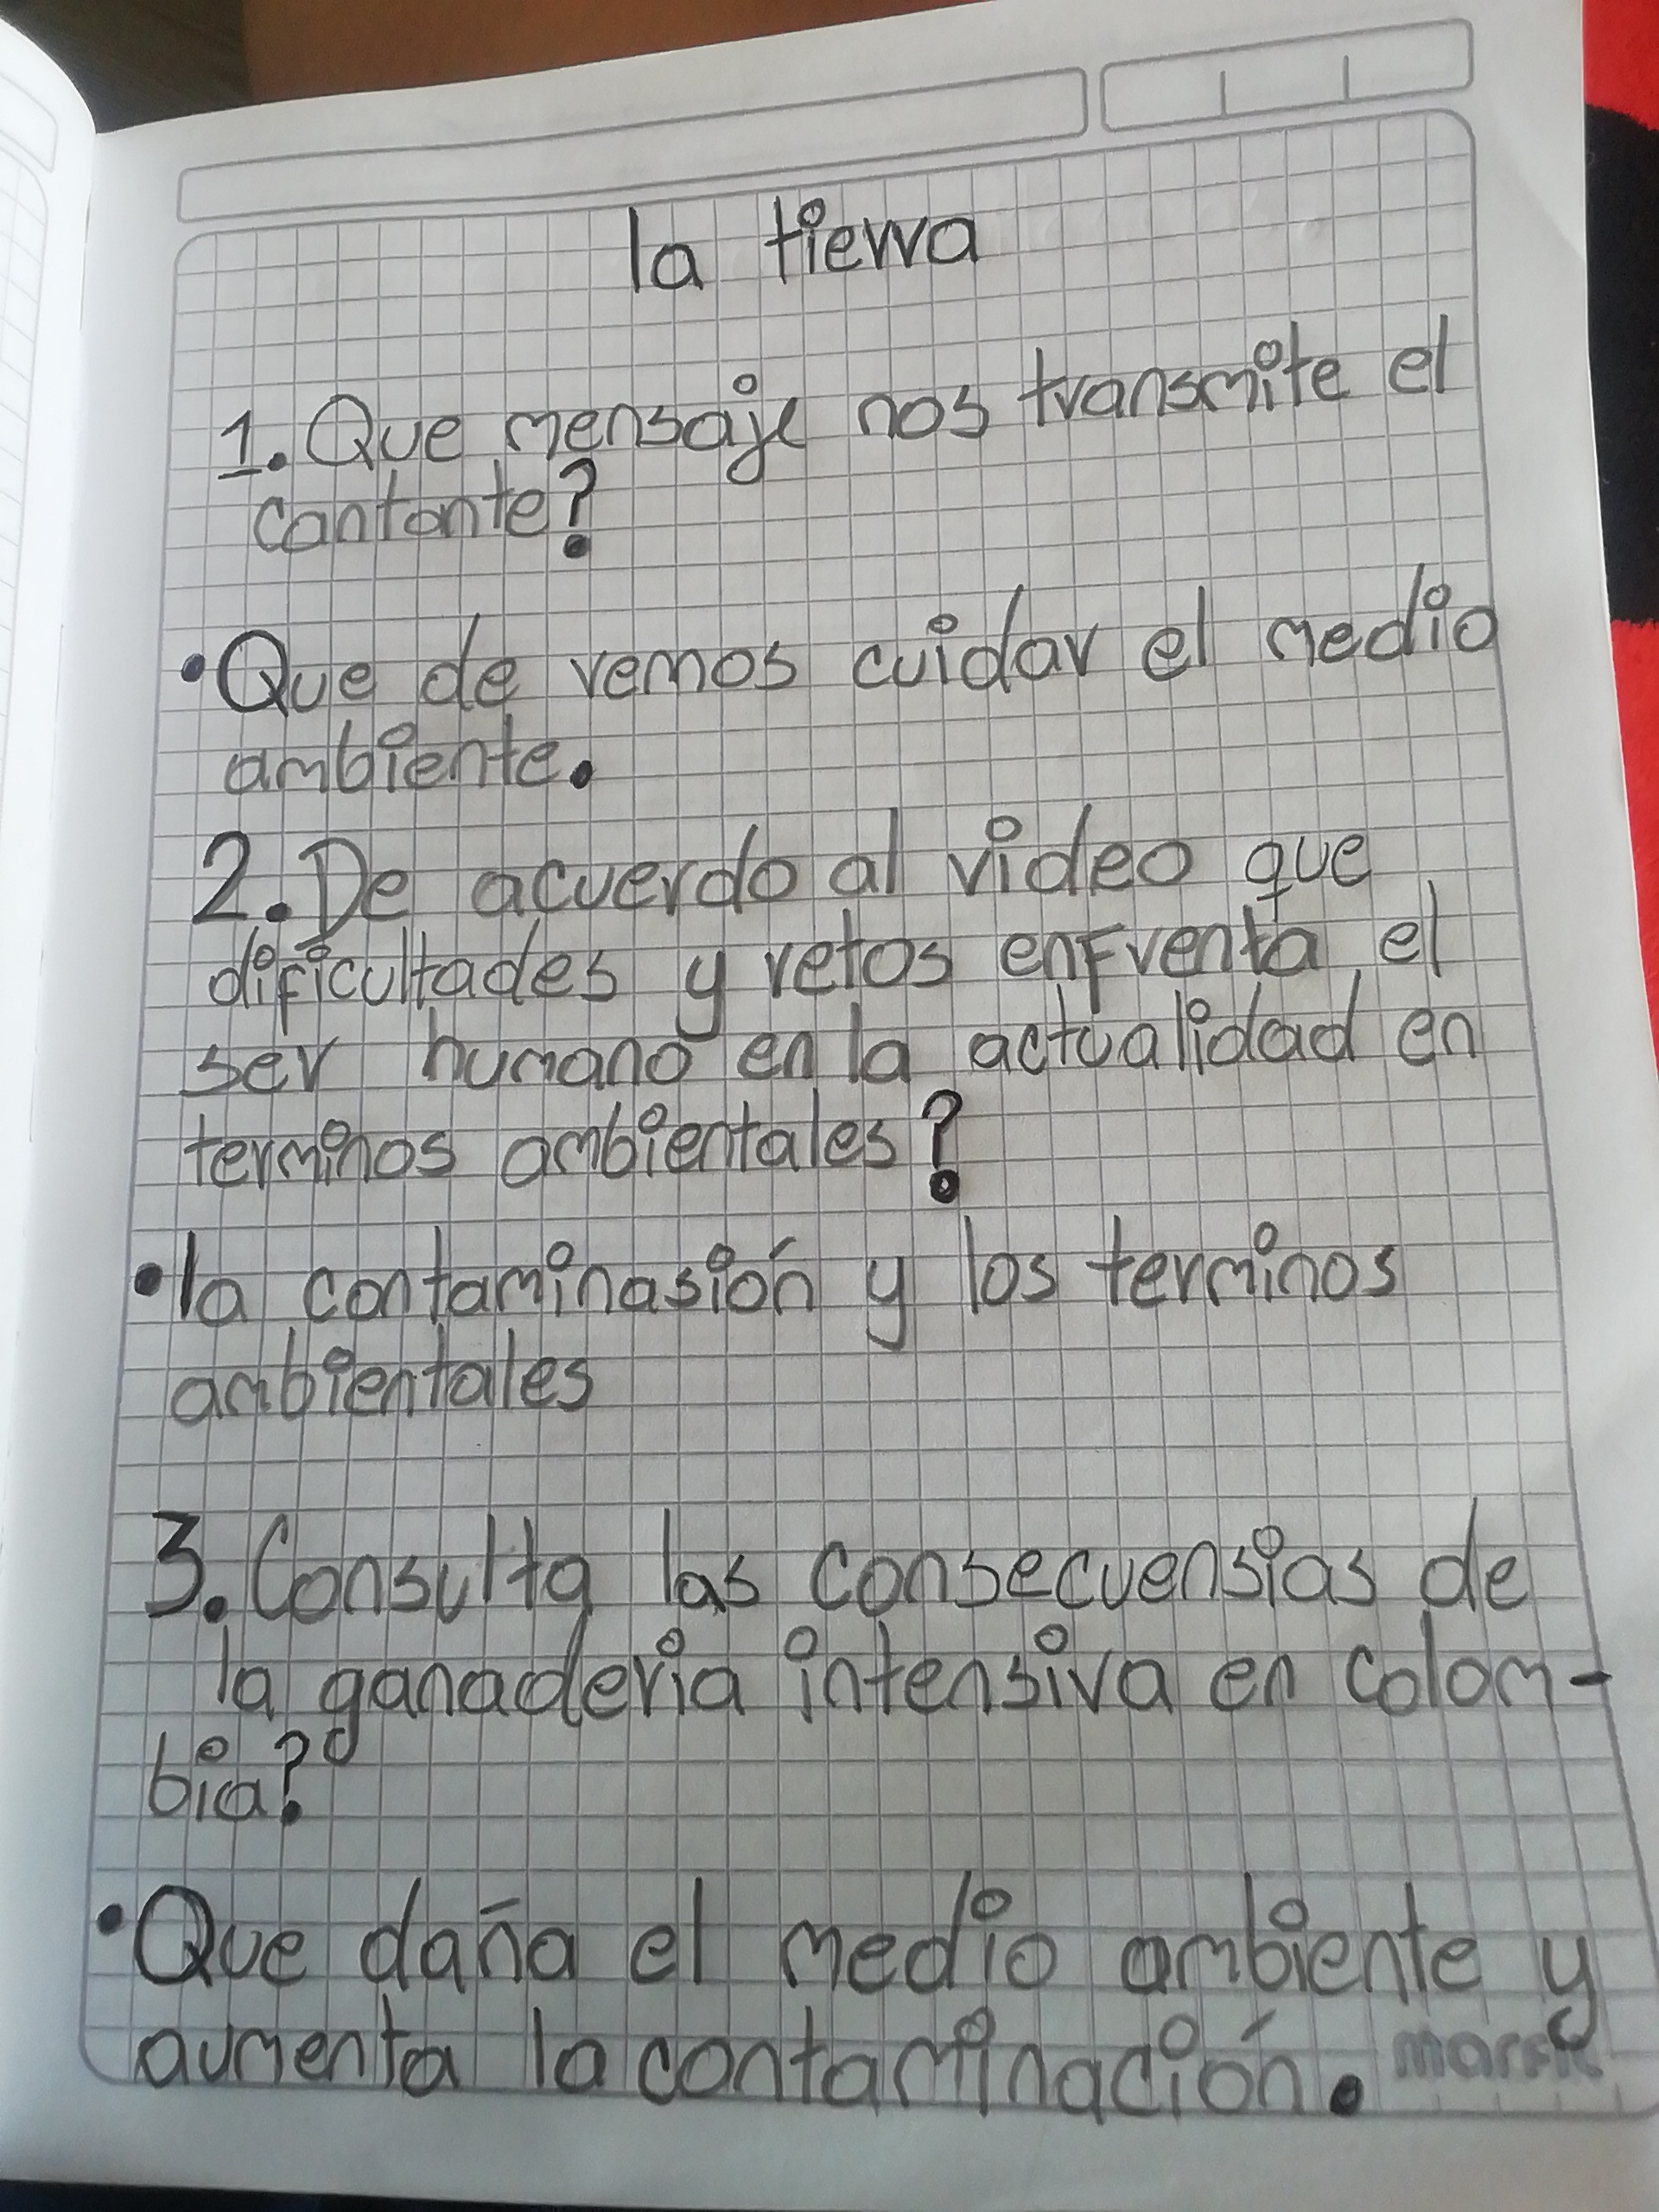 la tierra
1. Que mensaje nos transmite el
cantante?
• Que de vemos cuidar el medio
ambiente.
2. De acuerdo al video que
dificultades y retos enfrenta el
ser humano en la actualidad en
terminos ambientales?
• la contaminasión y los terminos
ambientales
3. Consulta las consecuensias de
la ganaderia intensiva en colom-
bia?
• Que daña el medio ambiente y
aumenta la contaminación.